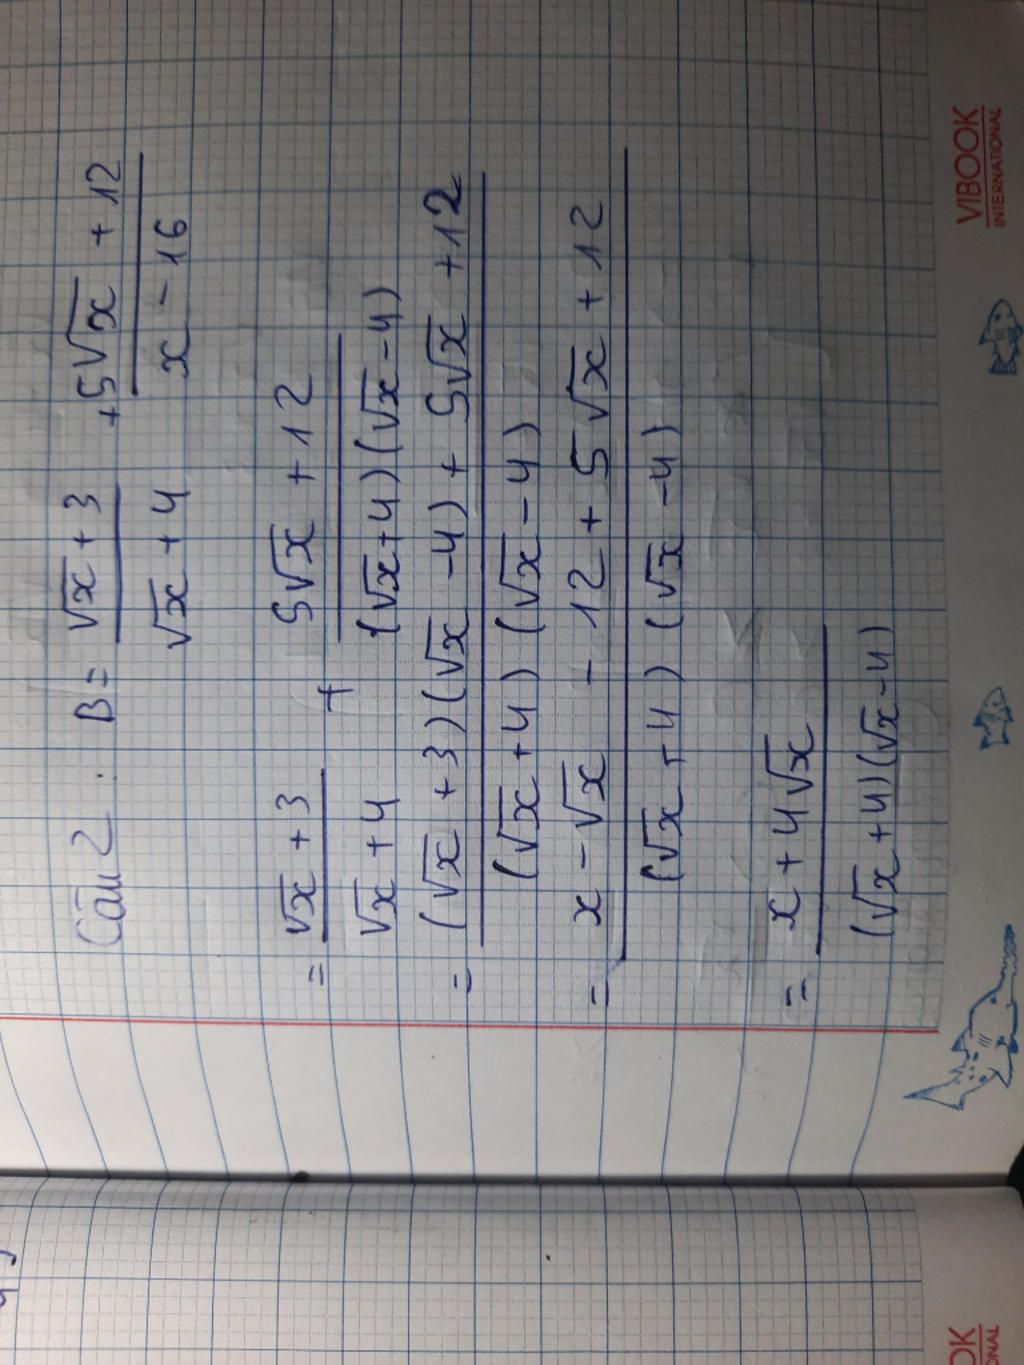 Câu 2 : B = (√x + 3)/(√x + 4) + (5√x + 12)/(x - 16)
= (√x + 3)/(√x + 4) + (5√x + 12)/((√x + 4)(√x - 4))
= ((√x + 3)(√x - 4) + 5√x + 12)/((√x + 4)(√x - 4))
= (x - √x - 12 + 5√x + 12)/((√x + 4)(√x - 4))
= (x + 4√x)/((√x + 4)(√x - 4))
VIBOOK
INTERNATIONAL